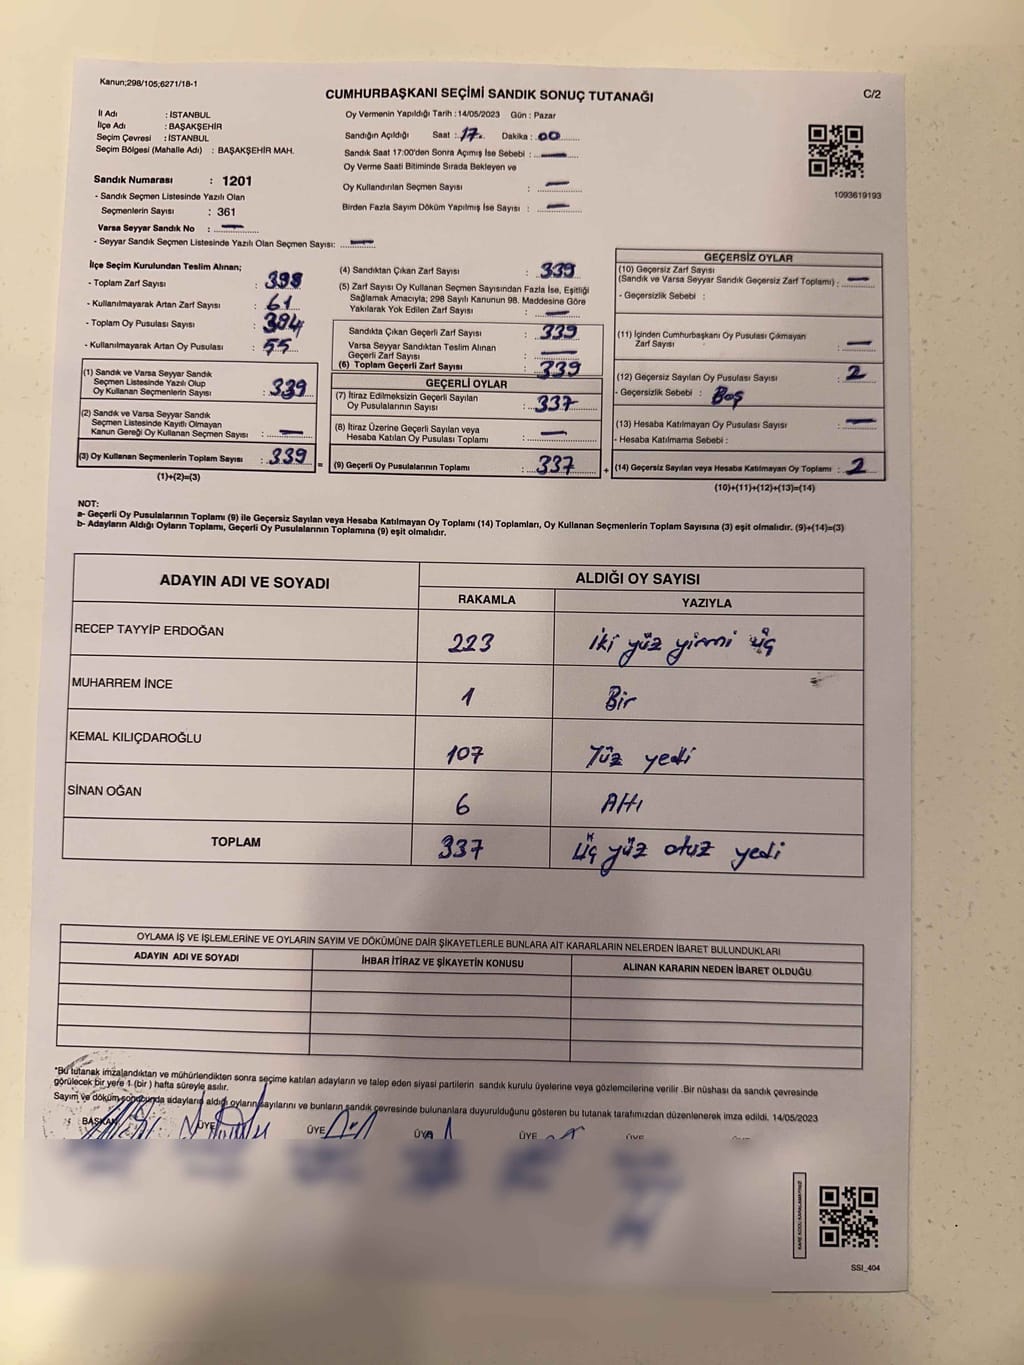 Kanun;298/105;6271/18-1
CUMHURBAŞKANI SEÇİMİ SANDIK SONUÇ TUTANAĞI
C/2
İl Adı : İSTANBUL
İlçe Adı : BAŞAKŞEHİR
Seçim Çevresi : İSTANBUL
Seçim Bölgesi (Mahalle Adı) : BAŞAKŞEHİR MAH.
Sandık Numarası : 1201
- Sandık Seçmen Listesinde Yazılı Olan
Seçmenlerin Sayısı : 361
Varsa Seyyar Sandık No : —
- Seyyar Sandık Seçmen Listesinde Yazılı Olan Seçmen Sayısı: —
Oy Vermenin Yapıldığı Tarih : 14/05/2023 Gün : Pazar
Sandığın Açıldığı Saat : 17 Dakika : 00
Sandık Saat 17:00'den Sonra Açımış İse Sebebi : —
Oy Verme Saati Bitiminde Sırada Bekleyen ve
Oy Kullandırılan Seçmen Sayısı : —
Birden Fazla Sayım Döküm Yapılmış İse Sayısı : —
1093619193
İlçe Seçim Kurulundan Teslim Alınan;
- Toplam Zarf Sayısı :
- Kullanılmayarak Artan Zarf Sayısı : 61
- Toplam Oy Pusulası Sayısı :
- Kullanılmayarak Artan Oy Pusulası : 55
(1) Sandık ve Varsa Seyyar Sandık
Seçmen Listesinde Yazılı Olup
Oy Kullanan Seçmenlerin Sayısı : 339
(2) Sandık ve Varsa Seyyar Sandık
Seçmen Listesinde Kayıtlı Olmayan
Kanun Gereği Oy Kullanan Seçmen Sayısı : —
(3) Oy Kullanan Seçmenlerin Toplam Sayısı : 339
(1)+(2)=(3)
(4) Sandıktan Çıkan Zarf Sayısı : 339
(5) Zarf Sayısı Oy Kullanan Seçmen Sayısından Fazla İse, Eşitliği
Sağlamak Amacıyla; 298 Sayılı Kanunun 98. Maddesine Göre
Yakılarak Yok Edilen Zarf Sayısı : —
Sandıkta Çıkan Geçerli Zarf Sayısı : 339
Varsa Seyyar Sandıktan Teslim Alınan
Geçerli Zarf Sayısı : —
(6) Toplam Geçerli Zarf Sayısı : 339
GEÇERLİ OYLAR
(7) İtiraz Edilmeksizin Geçerli Sayılan
Oy Pusulalarının Sayısı : 337
(8) İtiraz Üzerine Geçerli Sayılan veya
Hesaba Katılan Oy Pusulası Toplamı : —
= (9) Geçerli Oy Pusulalarının Toplamı : 337
GEÇERSİZ OYLAR
(10) Geçersiz Zarf Sayısı
(Sandık ve Varsa Seyyar Sandık Geçersiz Zarf Toplamı) : —
- Geçersizlik Sebebi :
(11) İçinden Cumhurbaşkanı Oy Pusulası Çıkmayan
Zarf Sayısı : —
(12) Geçersiz Sayılan Oy Pusulası Sayısı : 2
- Geçersizlik Sebebi : Boş
(13) Hesaba Katılmayan Oy Pusulası Sayısı : —
- Hesaba Katılmama Sebebi :
+ (14) Geçersiz Sayılan veya Hesaba Katılmayan Oy Toplamı : 2
(10)+(11)+(12)+(13)=(14)
NOT:
a- Geçerli Oy Pusulalarının Toplamı (9) ile Geçersiz Sayılan veya Hesaba Katılmayan Oy Toplamı (14) Toplamları, Oy Kullanan Seçmenlerin Toplam Sayısına (3) eşit olmalıdır. (9)+(14)=(3)
b- Adayların Aldığı Oyların Toplamı, Geçerli Oy Pusulalarının Toplamına (9) eşit olmalıdır.
ADAYIN ADI VE SOYADI ALDIĞI OY SAYISI
RAKAMLA YAZIYLA
RECEP TAYYİP ERDOĞAN 223 İki yüz yirmi üç
MUHARREM İNCE 1 Bir
KEMAL KILIÇDAROĞLU 107 Yüz yedi
SİNAN OĞAN 6 Altı
TOPLAM 337 Üç yüz otuz yedi
OYLAMA İŞ VE İŞLEMLERİNE VE OYLARIN SAYIM VE DÖKÜMÜNE DAİR ŞİKAYETLERLE BUNLARA AİT KARARLARIN NELERDEN İBARET BULUNDUKLARI
ADAYIN ADI VE SOYADI İHBAR İTİRAZ VE ŞİKAYETİN KONUSU ALINAN KARARIN NEDEN İBARET OLDUĞU
*Bu tutanak imzalandıktan ve mühürlendikten sonra seçime katılan adayların ve talep eden siyasi partilerin sandık kurulu üyelerine veya gözlemcilerine verilir .Bir nüshası da sandık çevresinde
görülecek bir yere 1 (bir ) hafta süreyle asılır.
Sayım ve döküm sonucunda adayların aldığı oyların sayılarını ve bunların sandık çevresinde bulunanlara duyurulduğunu gösteren bu tutanak tarafımızdan düzenlenerek imza edildi. 14/05/2023
BAŞKAN ÜYE ÜYE ÜYE ÜYE ÜYE
SSI_404